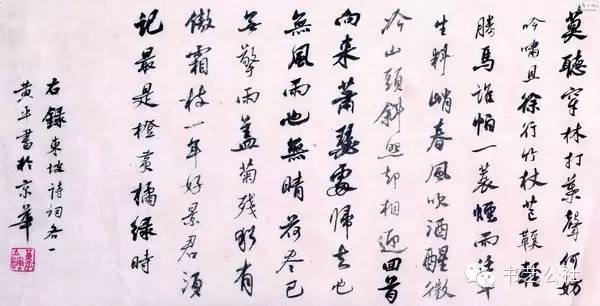 莫聽穿林打葉聲何妨
吟嘯且徐行竹杖芒鞵輕
勝馬誰怕一蓑煙雨任平
生料峭春風吹酒醒微
冷山頭斜照却相迎回首
向来蕭瑟處歸去也
無風雨也無晴荷盡已
無擎雨蓋菊殘猶有
傲霜枝一年好景君須
記最是橙黃橘綠時
右錄東坡詩詞各一
黃平書於京華
书艺公社